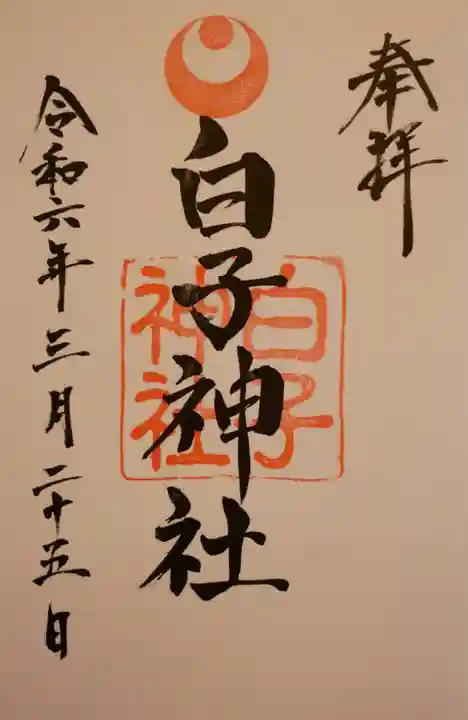 奉拝
白子神社
白子
神社
令和六年三月二十五日